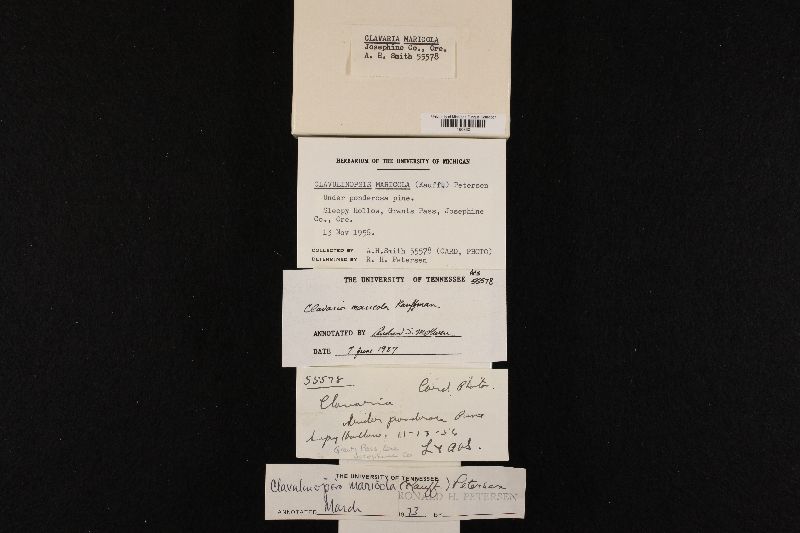 CLAVARIA MARICOLA
Josephine Co., Ore.
A. H. Smith 55578
HERBARIUM OF THE UNIVERSITY OF MICHIGAN
CLAVULINOPSIS MARICOLA (Kauff.) Petersen
Under ponderosa pine.
Sleepy Hollow, Grants Pass, Josephine
Co., Ore.
13 Nov 1956.
COLLECTED BY A.H.Smith 55578 (CARD, PHOTO)
DETERMINED BY R. H. Petersen
THE UNIVERSITY OF TENNESSEE AHS 55578
Clavaria maricola Kauffman
ANNOTATED BY Andrew S.
DATE 7 June 1987
55578 Card. Photo.
Clavaria
Under ponderosa Pine
11-13-56
Grants Pass Ore
Josephine Co
THE UNIVERSITY OF TENNESSEE
Clavulinopsis maricola (Kauff.) Petersen
RONALD H. PETERSEN
ANNOTATED March 1973 BY